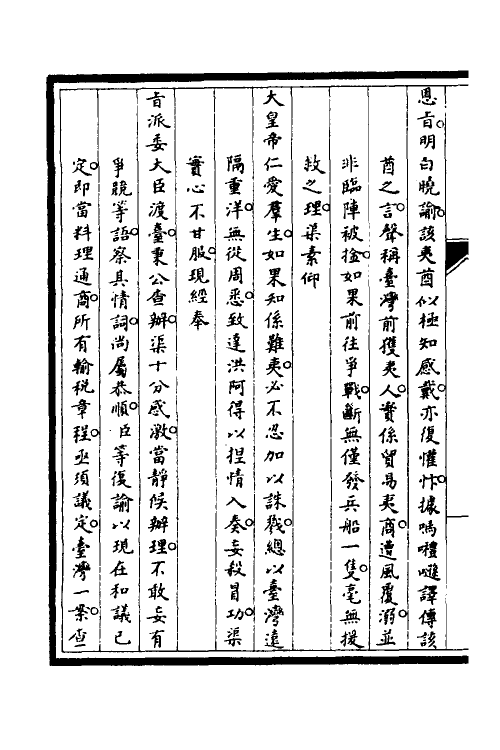 恩旨。明白曉諭。該夷酋似極知感戴。亦復懽忭。據嗎禮噠譯傳該
酋之言。聲稱臺灣前獲夷人。實係貿易夷商。遭風覆溺。並
非臨陣被擒。如果前往爭戰。斷無僅發兵船一隻。毫無援
救之理。渠素仰
大皇帝仁愛羣生。如果知係難夷。必不忍加以誅戮。總以臺灣遠
隔重洋。無從周悉。致達洪阿得以捏情入奏。妄殺冒功。渠
實心不甘服。現經奉
旨派委大臣渡臺。秉公查辦。渠十分感激。當靜候辦理。不敢妄有
爭競等語。察其情詞。尚屬恭順。臣等復諭以現在和議已
定。即當料理通商。所有輸稅章程。亟須議定。臺灣一案。查